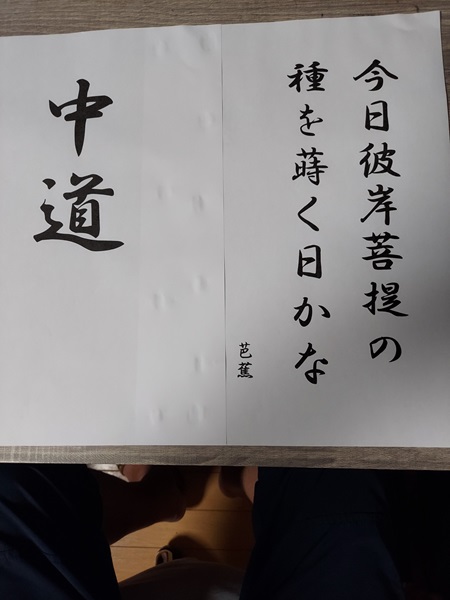 今日彼岸菩提の
種を蒔く日かな
芭蕉
中道